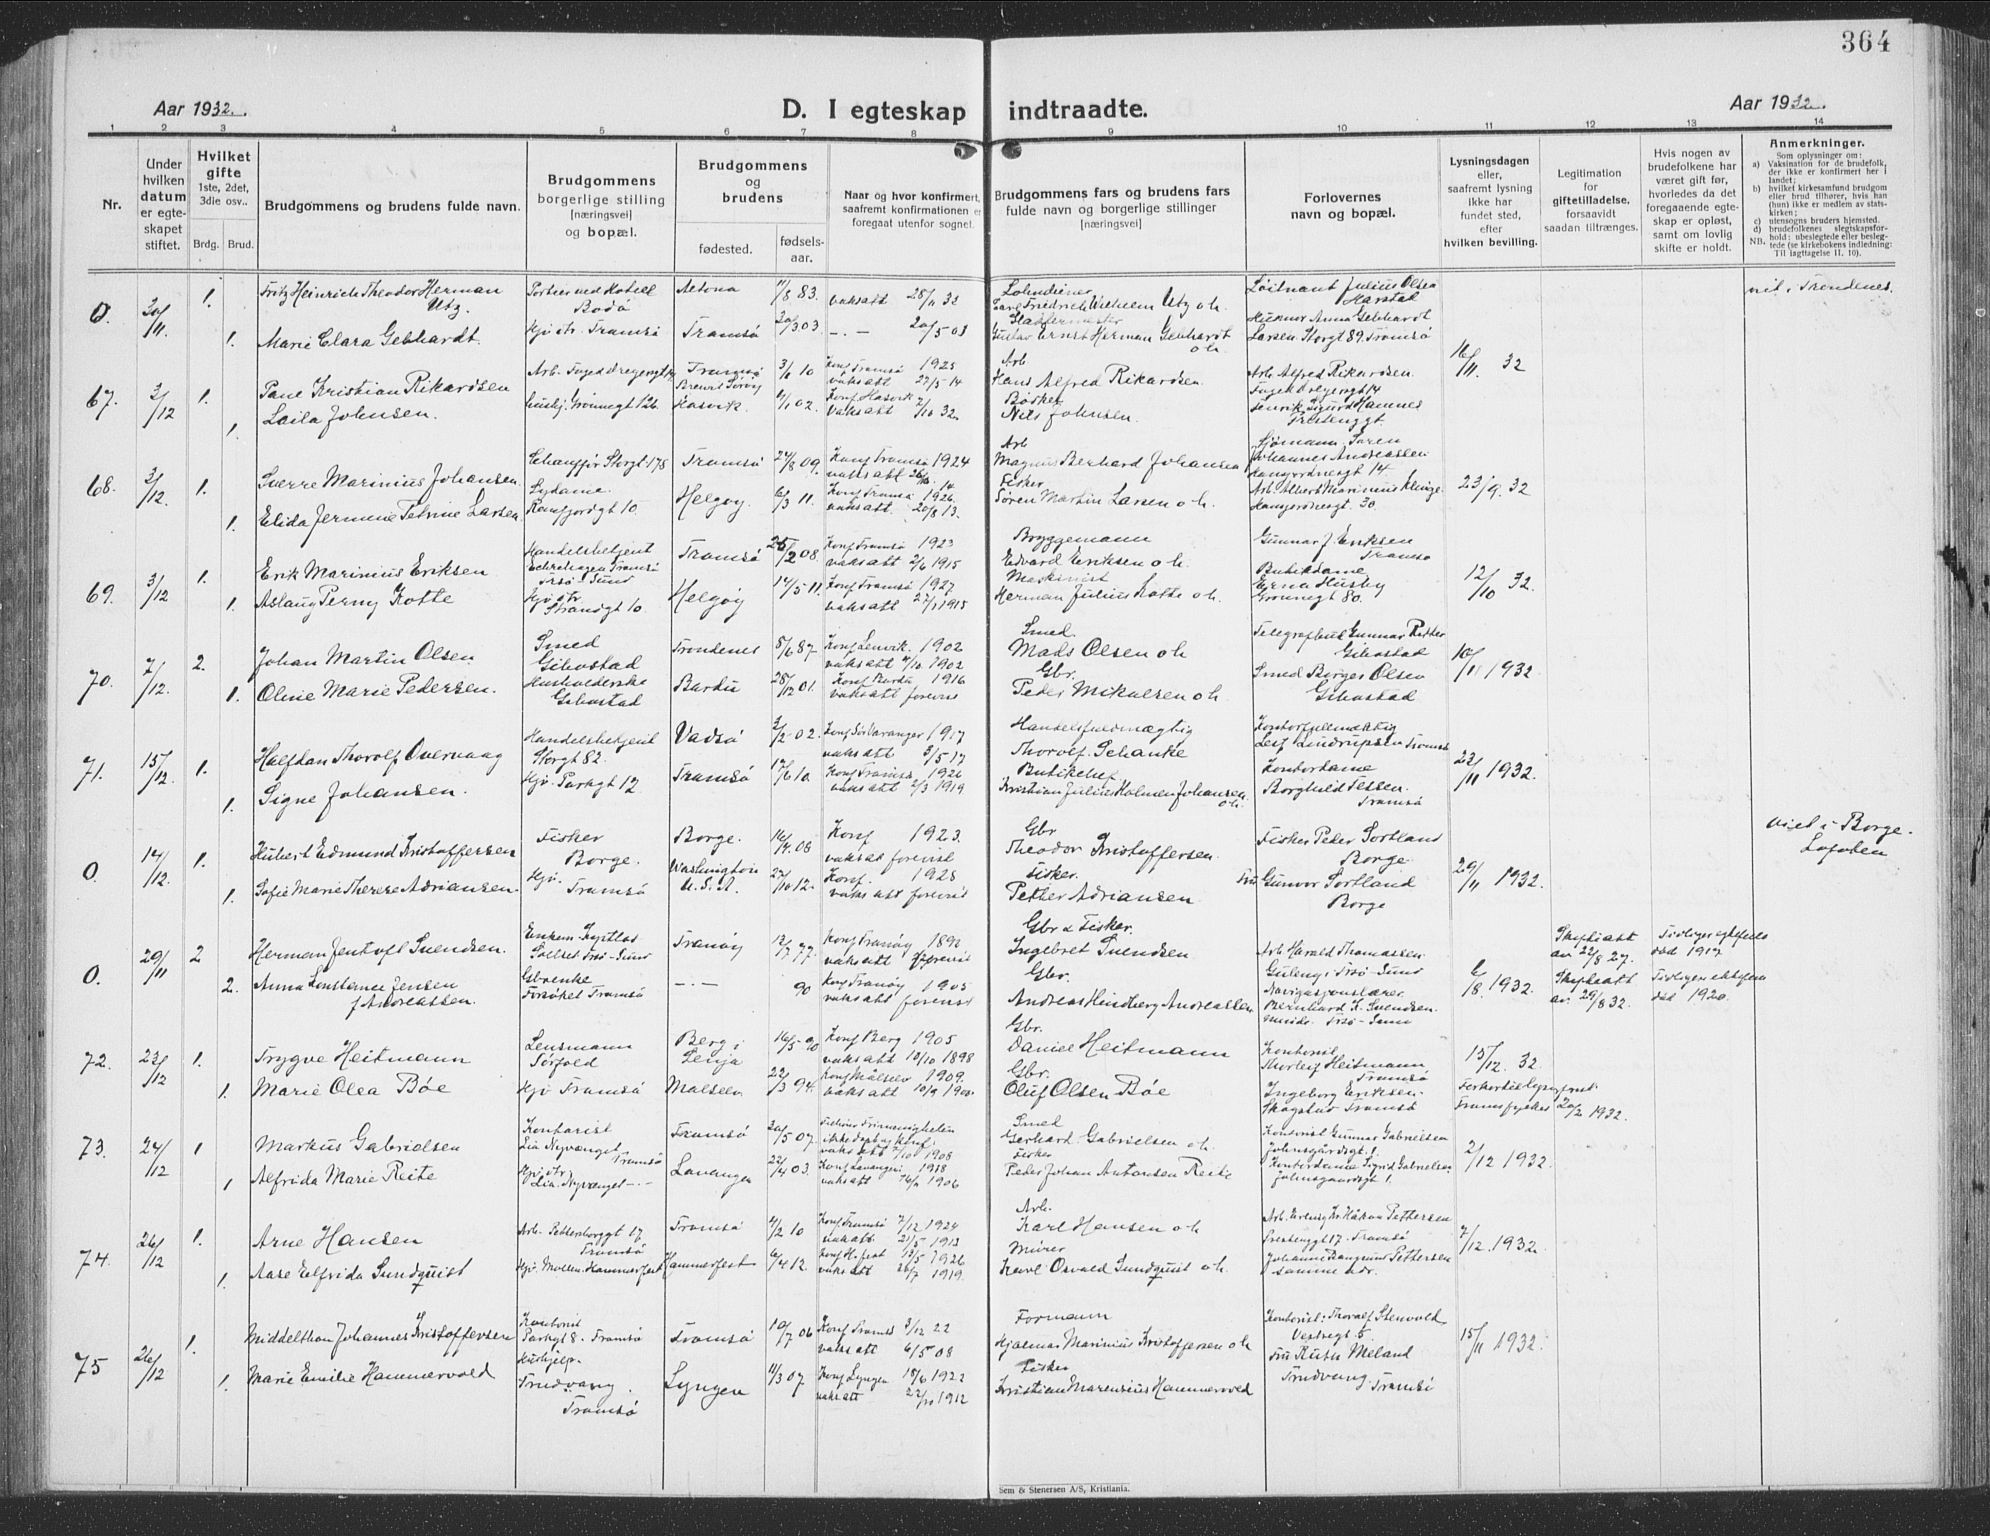 364
Aar 1932.
D. I egteskap indtraadte.
Aar 1932.
1 2 3 4 5 6 7 8 9 10 11 12 13 14
Nr.
Under hvilken datum er egteskapet stiftet.
Hvilket gifte
1ste, 2det, 3die osv..
Brdg. Brud.
Brudgommens og brudens fulde navn.
Brudgommens borgerlige stilling [næringsvei] og bopæl.
Brudgommens og brudens
fødested.
fødselsaar.
Naar og hvor konfirmert, saafremt konfirmationen er foregaat utenfor sognet.
Brudgommens fars og brudens fars fulde navn og borgerlige stillinger [næringsvei]
Forlovernes navn og bopæl.
Lysningsdagen eller, saafremt lysning ikke har fundet sted, efter hvilken bevilling.
Legitimation for giftetilladelse, forsaavidt saadan tiltrænges.
Hvis nogen av brudefolkene har været gift før, hvorledes da det foregaaende egteskap er opløst, samt om lovlig skifte er holdt.
Anmerkninger.
Som oplysninger om:
a) Vaksination for de brudefolk, der ikke er konfirmert her i landet;
b) hvilket kirkesamfund brudgom eller brud tilhører, hvis han (hun) ikke er medlem av statskirken;
c) utensogns bruders hjemsted.
d) brudefolkenes slegtskapsforhold: ubeslegtede eller beslegtede (se kirkebokens indledning: Til iagttagelse II. 10).
NB.
0. 20/11. 1. Fritz Heinrich Theodor Herman Utz. Portier ved Hotell Bodø Altona 11/8 83. vaksatt 28/11 32 Carl Friedrich Wilhelm Utz o h. Løitnant Julius Olsen Harstad viet i Trondenes.
1. Marie Clara Gebhardt. Hjv. str. Tromsø Tromsø 20/3 03 20/5 03 Gustav Ernst Herman Gebhardt o h. Anna Gebhardt Larsen Storgt 89. Tromsø
67. 3/12 1. Kristian Rikardsen Arb. Tromsø 3/6 10 Konf Tromsø 1925 vaksatt 27/5 14 Arb Hans Alfred Rikardsen. Arb. Alfred Rikardsen. 16/11. 32
1. Laila Johnsen. Grønnegt 126. Hasvik. 4/1 02. Konf Hasvik vaksatt 2/10 32. Nils Johnsen. Henrik Sigurd Hamnes
68. 3/12 1. Sverre Marinius Johansen. Chauffør Storgt 178 Tromsø 24/8 09. Konf Tromsø 1924 vaksatt Arb Magnus Berhard Johansen Sjømann Søren Johannes Andreassen 23/9. 32
1. Elida Jermine Petrine Larsen Sydame. Ramfjordgt 10. Helgøy. 6/3 11. Konf Tromsø 1926. vaksatt. 20/8 13. Fisker Søren Martin Larsen o h. Arb. Albert Marinius Klinge
69. 3/12 1. Erik Marinius Eriksen Handelsbetjent Tromsø 25/2 08. Konf Tromsø 1923 vaksatt 2/6 1915 Bryggemann Edvard Eriksen o h. Gunnar J. Eriksen Tromsø 12/10 32.
1. Aslaug Perny Kotte Hjv str. Strandgt 10. Helgøy 14/5 11. Konf Tromsø 1927 vaksatt 27/1 1915 Maskinist Herman Julius Kotte o h. Butikdame Erna Husby Grønnegt 80.
70. 7/12. 2. Johan Martin Olsen Smed Gibostad Trondenes 8/6 87 Konf Lenvik 1902 vaksatt 4/10 1902 Smed. Mads Olsen o h Telegrafbud Gunnar Gibostad 16/11 1932.
1. Oline Marie Pedersen. Husholderske Gibostad Bardu 28/12 01. Konf Bardu 1916 vaksatt forevist Gbr. Peder Mikalsen o h. Smed Birger Olsen Gibostad
71. 15/12. 1. Halfdan Thorolf Overvaag Handelsbetjent Storgt 82. Vadsø 3/2 02. Konf Sør Varanger 1917 vaksatt 3/5 17 Handelsfuldmægtig Thorolf Schanke Kontorfullmæktig Leif Lindrupsen Tromsø 22/11 1932.
1. Signe Johansen. Hjv. Parkgt 12 Tromsø 17/6 10. Konf Tromsø 1926 vaksatt 2/3 1919 Butikchef Kristian Julius Holmen Johansen. o h. Kontordame Borghild Tessen. Tromsø
0. 14/12. 1. Hubert Edmund Kristoffersen Fisker Borge. Borge. 16/4. 06 Konf 1923. vaksat forevist Gbr Theodor Kristoffersen. Fisker Peder Sortland Borge 29/11 1932. viet i Borge. Lofoten
1. Sofie Marie Therese Adriansen. Hjv. Tromsø Washington U. S. A. 27/10 12. Konf. 1928 vaks att forevist Fisker. Petter Adriansen Fru Gunvor Sortland Borge
0. 29/11 2 Herman Jentoft Svendsen. Enkem. Tranøy 12/7 77. Konf Tranøy 1892 vaksatt forevist Gbr & Fisker. Ingebret Svendsen Arb Harald Thomassen. 6/8. 1932. Skifteatt av 22/8 27. Tidligere ektefelle død 1917
2. Anna Konstanse Jensen f Andreassen. Gbr enke Tromsø 90 Konf Tranøy 1905 vaksatt forevist Gbr. Andreas Hindberg Andreassen Navigasjonslærer Bernhard K. Svendsen. Skifteatt av. 29/8 32. Tidligere ektefelle død 1920.
72. 23/12 1. Trygve Heitmann Lensmann Sørfold Berg i Senja 16/5 90 Konf Berg 1905 vaksatt 10/10 1898 Gbr. Daniel Heitmann Kontorist Thorleif Heitmann Tromsø 15/12. 32.
1. Marie Olea Bøe Hjv Tromsø Målselv 22/3 94. Konf Målselv 1909. vaksatt 10/9 1900. Gbr. Oluf Olsen Bøe Ingeborg Eriksen. Skogstad Tromsø 20/2 1932.
73. 24/12 1 Markus Gabrielsen Kontorist Lia Nyvænget Tromsø Tromsø 20/5 07. ikke døpt og konf. vaksatt 7/10 1908 Smed Gerhard Gabrielsen o h. Kontorist Gunnar Gabrielsen 2/12 1932.
1 Alfrida Marie Reite Hjv str. Lia. Nyvænget Lavangen 22/4 03. Konf Lavangen 1918 vaksatt 14/2 1906 Fisker Peder Johan Antonsen Reite Kontordame Sigrid Gabrielsen
74. 26/12 1. Arne Hansen Arb. Petersborggt 17 Tromsø Tromsø 4/2 10 Konf Tromsø 7/12 1924 vaksatt 21/5 1913 Arb. Karl Hansen o h Håkon Pettersen Tromsø 7/12. 1932.
1. Aase Elfrida Sundquist Hjv. Hammerfest Hammerfest 6/4 12. Konf H. fest 13/5 1926 vaksatt 26/7 1919. Murer Karl Osvald Sundquist o h. Pettersen samme adr.
75 26/12 1. Middelthon Johannes Kristoffersen Kontorist Parkgt 8. Tromsø Tromsø 10/7 06 Konf Tromsø 3/12 22 vaksatt 6/5 08 Formann Hjalmar Marinius Kristoffersen o h Kontorist: Thoralf Stenvold Vestregt 5. 15/11 1932.
1. Marie Emilie Hammervold Hushjelp. Trudvang. Tromsø Lyngen 11/3 07 Konf Lyngen 18/6 1922 vaksatt 22/10 1912 Fisker Kristian Marensius Hammervold Fru Ruth Meland Trudvang. Tromsø
Sem & Stenersen A/S, Kristiania.